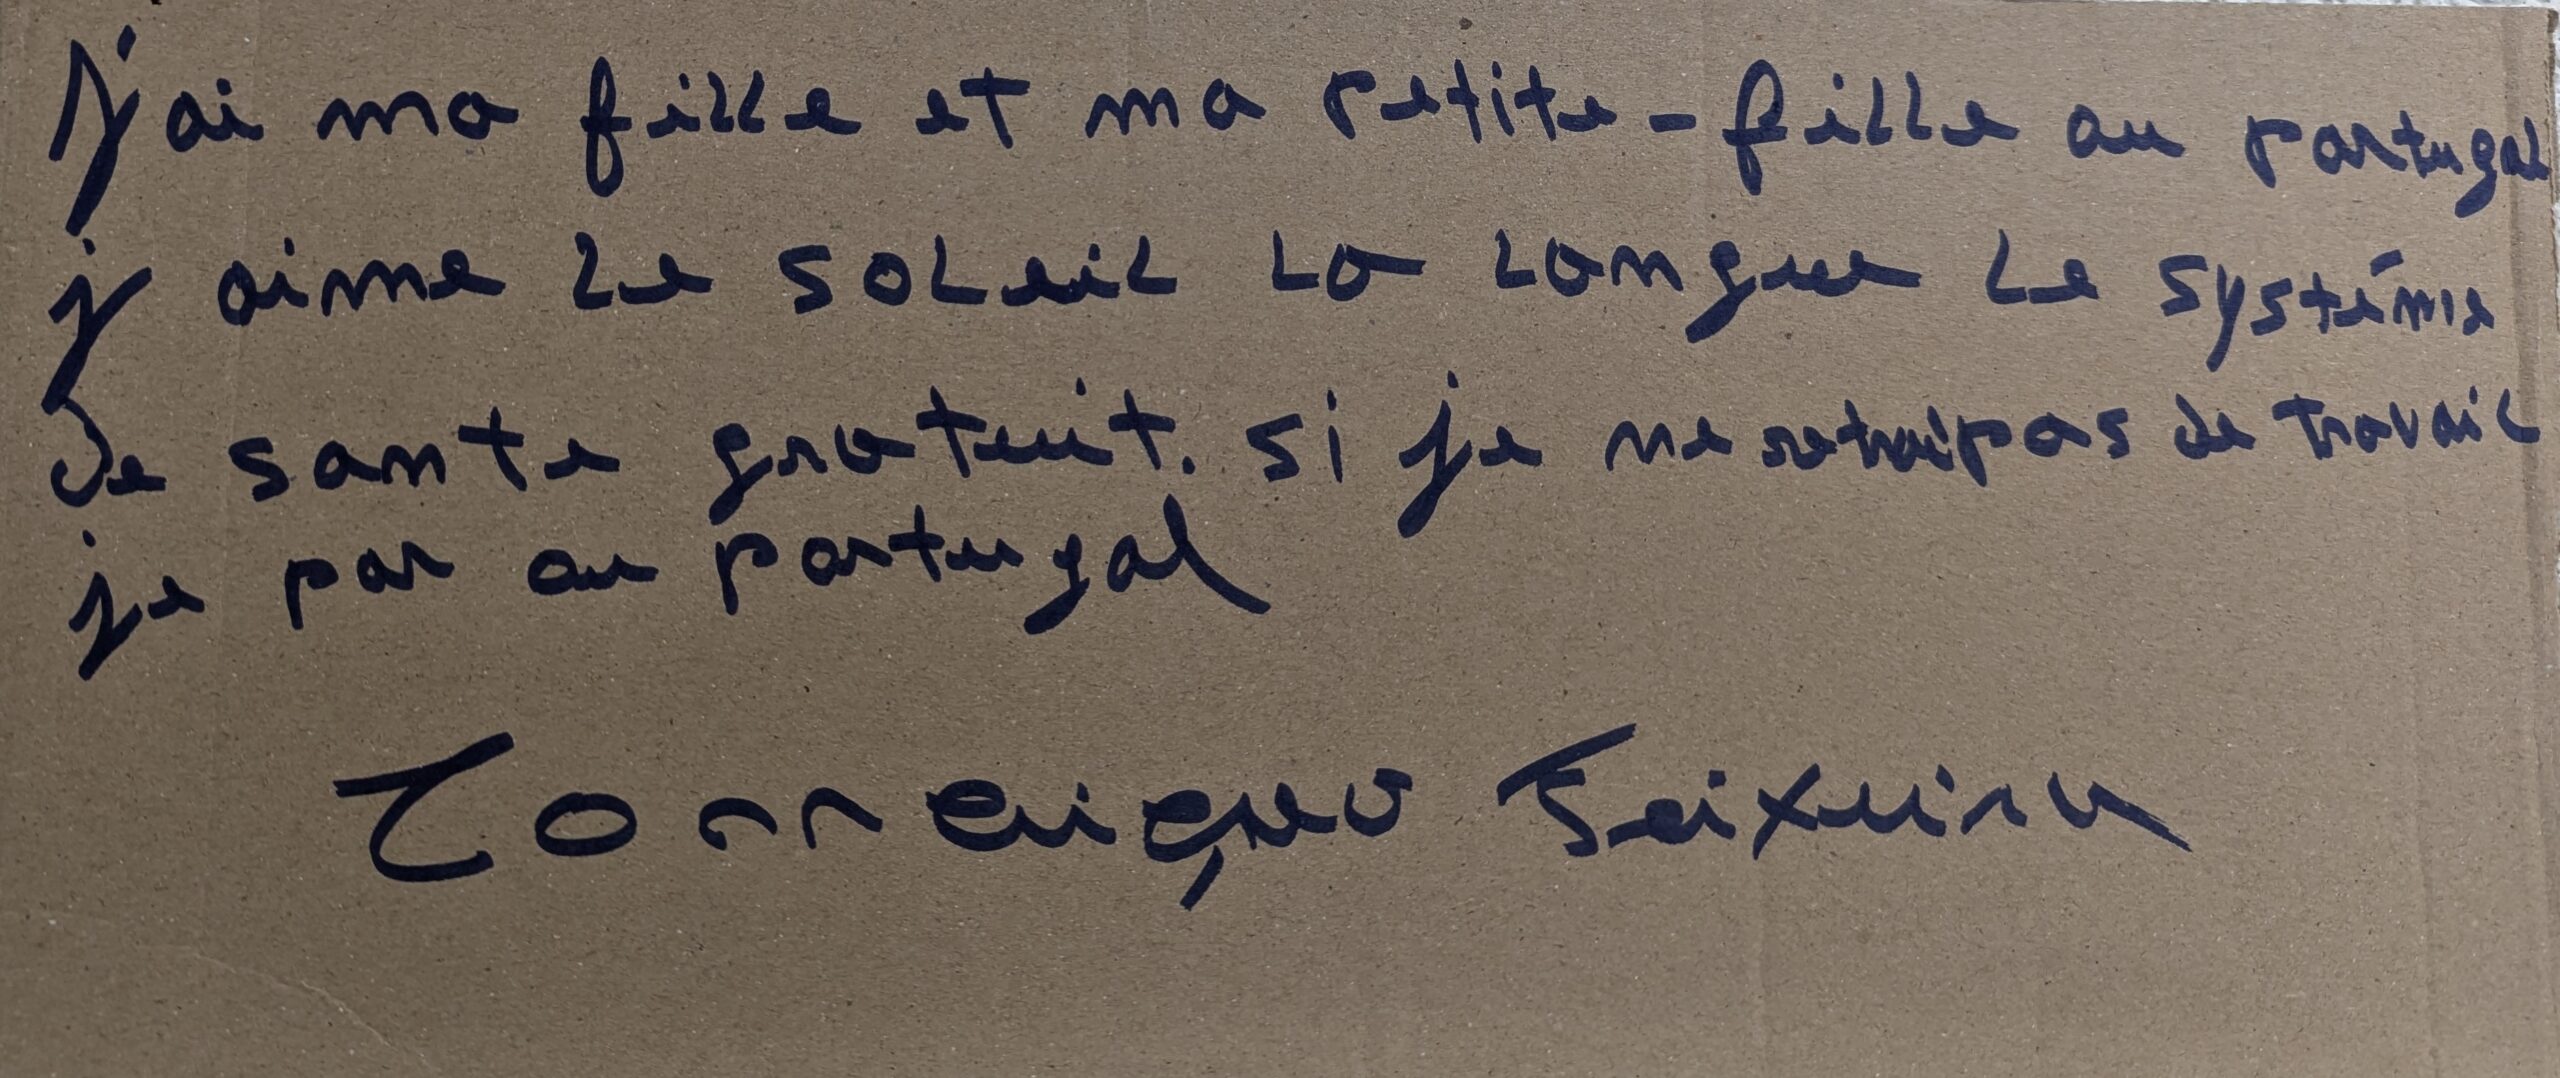 j'ai ma fille et ma petite-fille au portugal
j aime le soleil la langue le systéme
de sante gratuit. si je ne pas de travail
je par au portugal
Teixeira